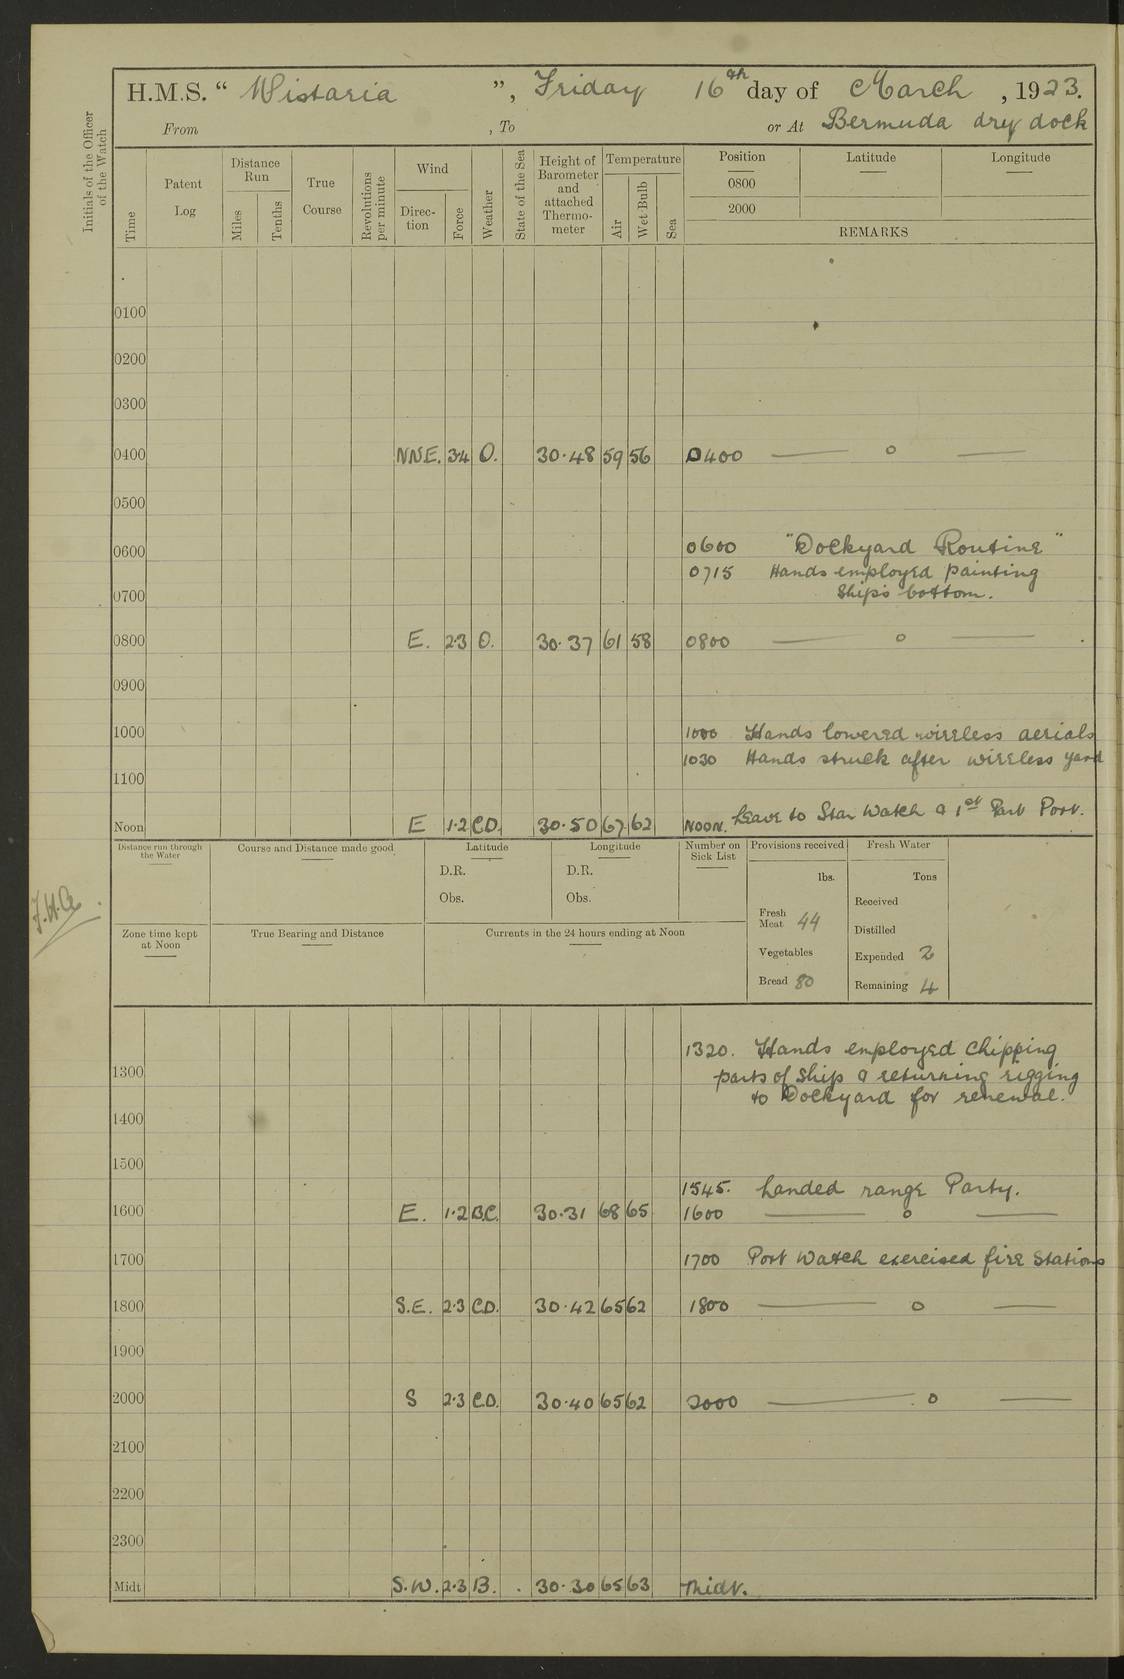 H.M.S. “ Wistaria ”, Friday 16th day of March , 1923.
From , To or At Bermuda dry dock
Initials of the Officer of the Watch
Time
Patent Log
Distance Run
Miles
Tenths
True Course
Revolutions per minute
Wind
Direc-tion
Force
Weather
State of the Sea
Height of Barometer and attached Thermo-meter
Temperature
Air
Wet Bulb
Sea
Position
0800
2000
Latitude
Longitude
REMARKS
0100
0200
0300
0400 NNE. 3·4 O. 30·48 59 56 0400 — o —
0500
0600 0600 "Dockyard Routine"
0715 Hands employed painting
0700 Ship's bottom.
0800 E. 2·3 O. 30·37 61 58 0800 — o —
0900
1000 1000 Hands lowered wireless aerials
1030 Hands struck after wireless yard
1100
Noon E 1·2 C.D. 30·50 67 62 NOON. Leave to Star Watch & 1st Part Port.
Distance run through the Water
Course and Distance made good
Latitude
D.R.
Obs.
Longitude
D.R.
Obs.
Number on Sick List
Provisions received
lbs.
Fresh Meat 44
Vegetables
Bread 80
Fresh Water
Tons
Received
Distilled
Expended 2
Remaining 4
J.H.A.
Zone time kept at Noon
True Bearing and Distance
Currents in the 24 hours ending at Noon
1320. Hands employed chipping
1300 parts of Ship & returning rigging
to Dockyard for renewal.
1400
1500
1545. Landed range Party.
1600 E. 1·2 B.C. 30·31 68 65 1600 — o —
1700 1700 Port Watch exercised fire Stations
1800 S.E. 2·3 C.D. 30·42 65 62 1800 — o —
1900
2000 S 2·3 C.D. 30·40 65 62 2000 — o —
2100
2200
2300
Midt S.W. 2·3 B. 30·30 65 63 Midt.